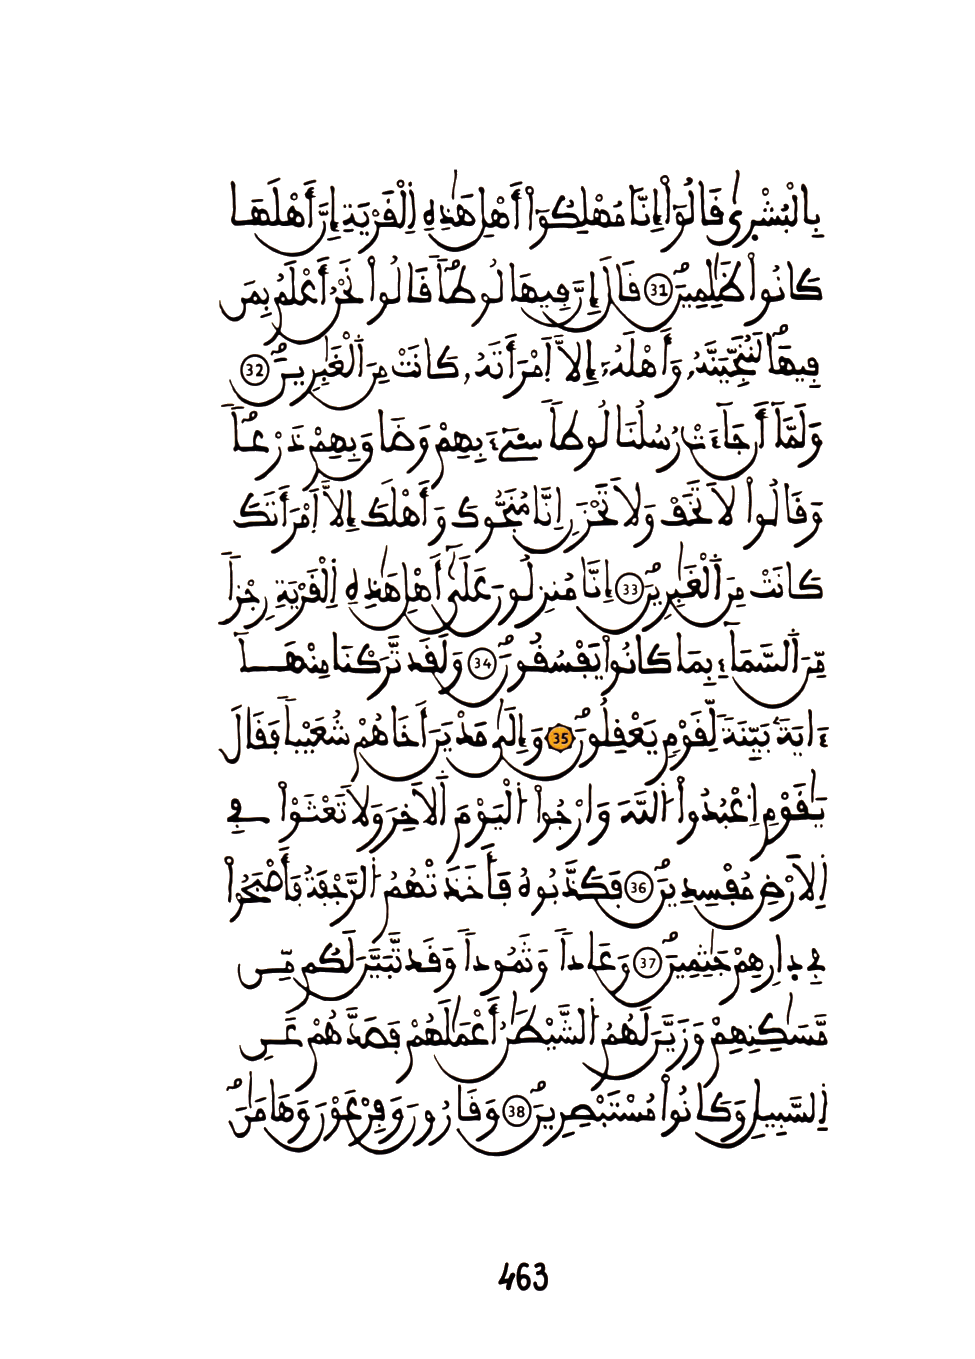 بِالْبُشْر۪يٰ قَالُوٓاْ إِنَّا مُهْلِكُوٓاْ أَهْلِ هَٰذِهِ اِ۬لْقَرْيَةِ إِنَّ أَهْلَهَا
كَانُواْ ظَٰلِمِينَۖ 31 قَالَ إِنَّ فِيهَا لُوطاٗۖ قَالُواْ نَحْنُ أَعْلَمُ بِمَن
فِيهَاۖ لَنُنَجِّيَنَّهُۥ وَأَهْلَهُۥٓ إِلَّا اَ۪مْرَأَتَهُۥ كَانَتْ مِنَ اَ۬لْغَٰبِرِينَۖ 32
وَلَمَّآ أَن جَآءَتْ رُسُلُنَا لُوطاٗ سِيٓءَ بِهِمْ وَضَاقَ بِهِمْ ذَرْعاٗۖ
وَقَالُواْ لَا تَخَفْ وَلَا تَحْزَنِ اِنَّا مُنَجُّوكَ وَأَهْلَكَ إِلَّا اَ۪مْرَأَتَكَ
كَانَتْ مِنَ اَ۬لْغَٰبِرِينَۖ 33 إِنَّا مُنزِلُونَ عَلَيٰٓ أَهْلِ هَٰذِهِ اِ۬لْقَرْيَةِ رِجْزاٗ
مِّنَ اَ۬لسَّمَآءِ بِمَا كَانُواْ يَفْسُقُونَۖ 34 وَلَقَد تَّرَكْنَا مِنْهَآ
ءَايَةَۢ بَيِّنَةٗ لِّقَوْمٖ يَعْقِلُونَۖ 35 وَإِلَيٰ مَدْيَنَ أَخَاهُمْ شُعَيْباٗ فَقَالَ
يَٰقَوْمِ اِ۟عْبُدُواْ اُ۬للَّهَ وَارْجُواْ اُ۬لْيَوْمَ اَ۬لَاخِرَ وَلَا تَعْثَوْاْ فِے
اِ۬لَارْضِ مُفْسِدِينَۖ 36 فَكَذَّبُوهُ فَأَخَذَتْهُمُ اُ۬لرَّجْفَةُ فَأَصْبَحُواْ
فِے د۪ارِهِمْ جَٰثِمِينَۖ 37 وَعَاداٗ وَثَمُوداٗ وَقَد تَّبَيَّنَ لَكُم مِّن
مَّسَٰكِنِهِمْ وَزَيَّنَ لَهُمُ اُ۬لشَّيْطَٰنُ أَعْمَٰلَهُمْ فَصَدَّهُمْ عَنِ
اِ۬لسَّبِيلِ وَكَانُواْ مُسْتَبْصِرِينَۖ 38 وَقَٰرُونَ وَفِرْعَوْنَ وَهَامَٰنَۖ
463